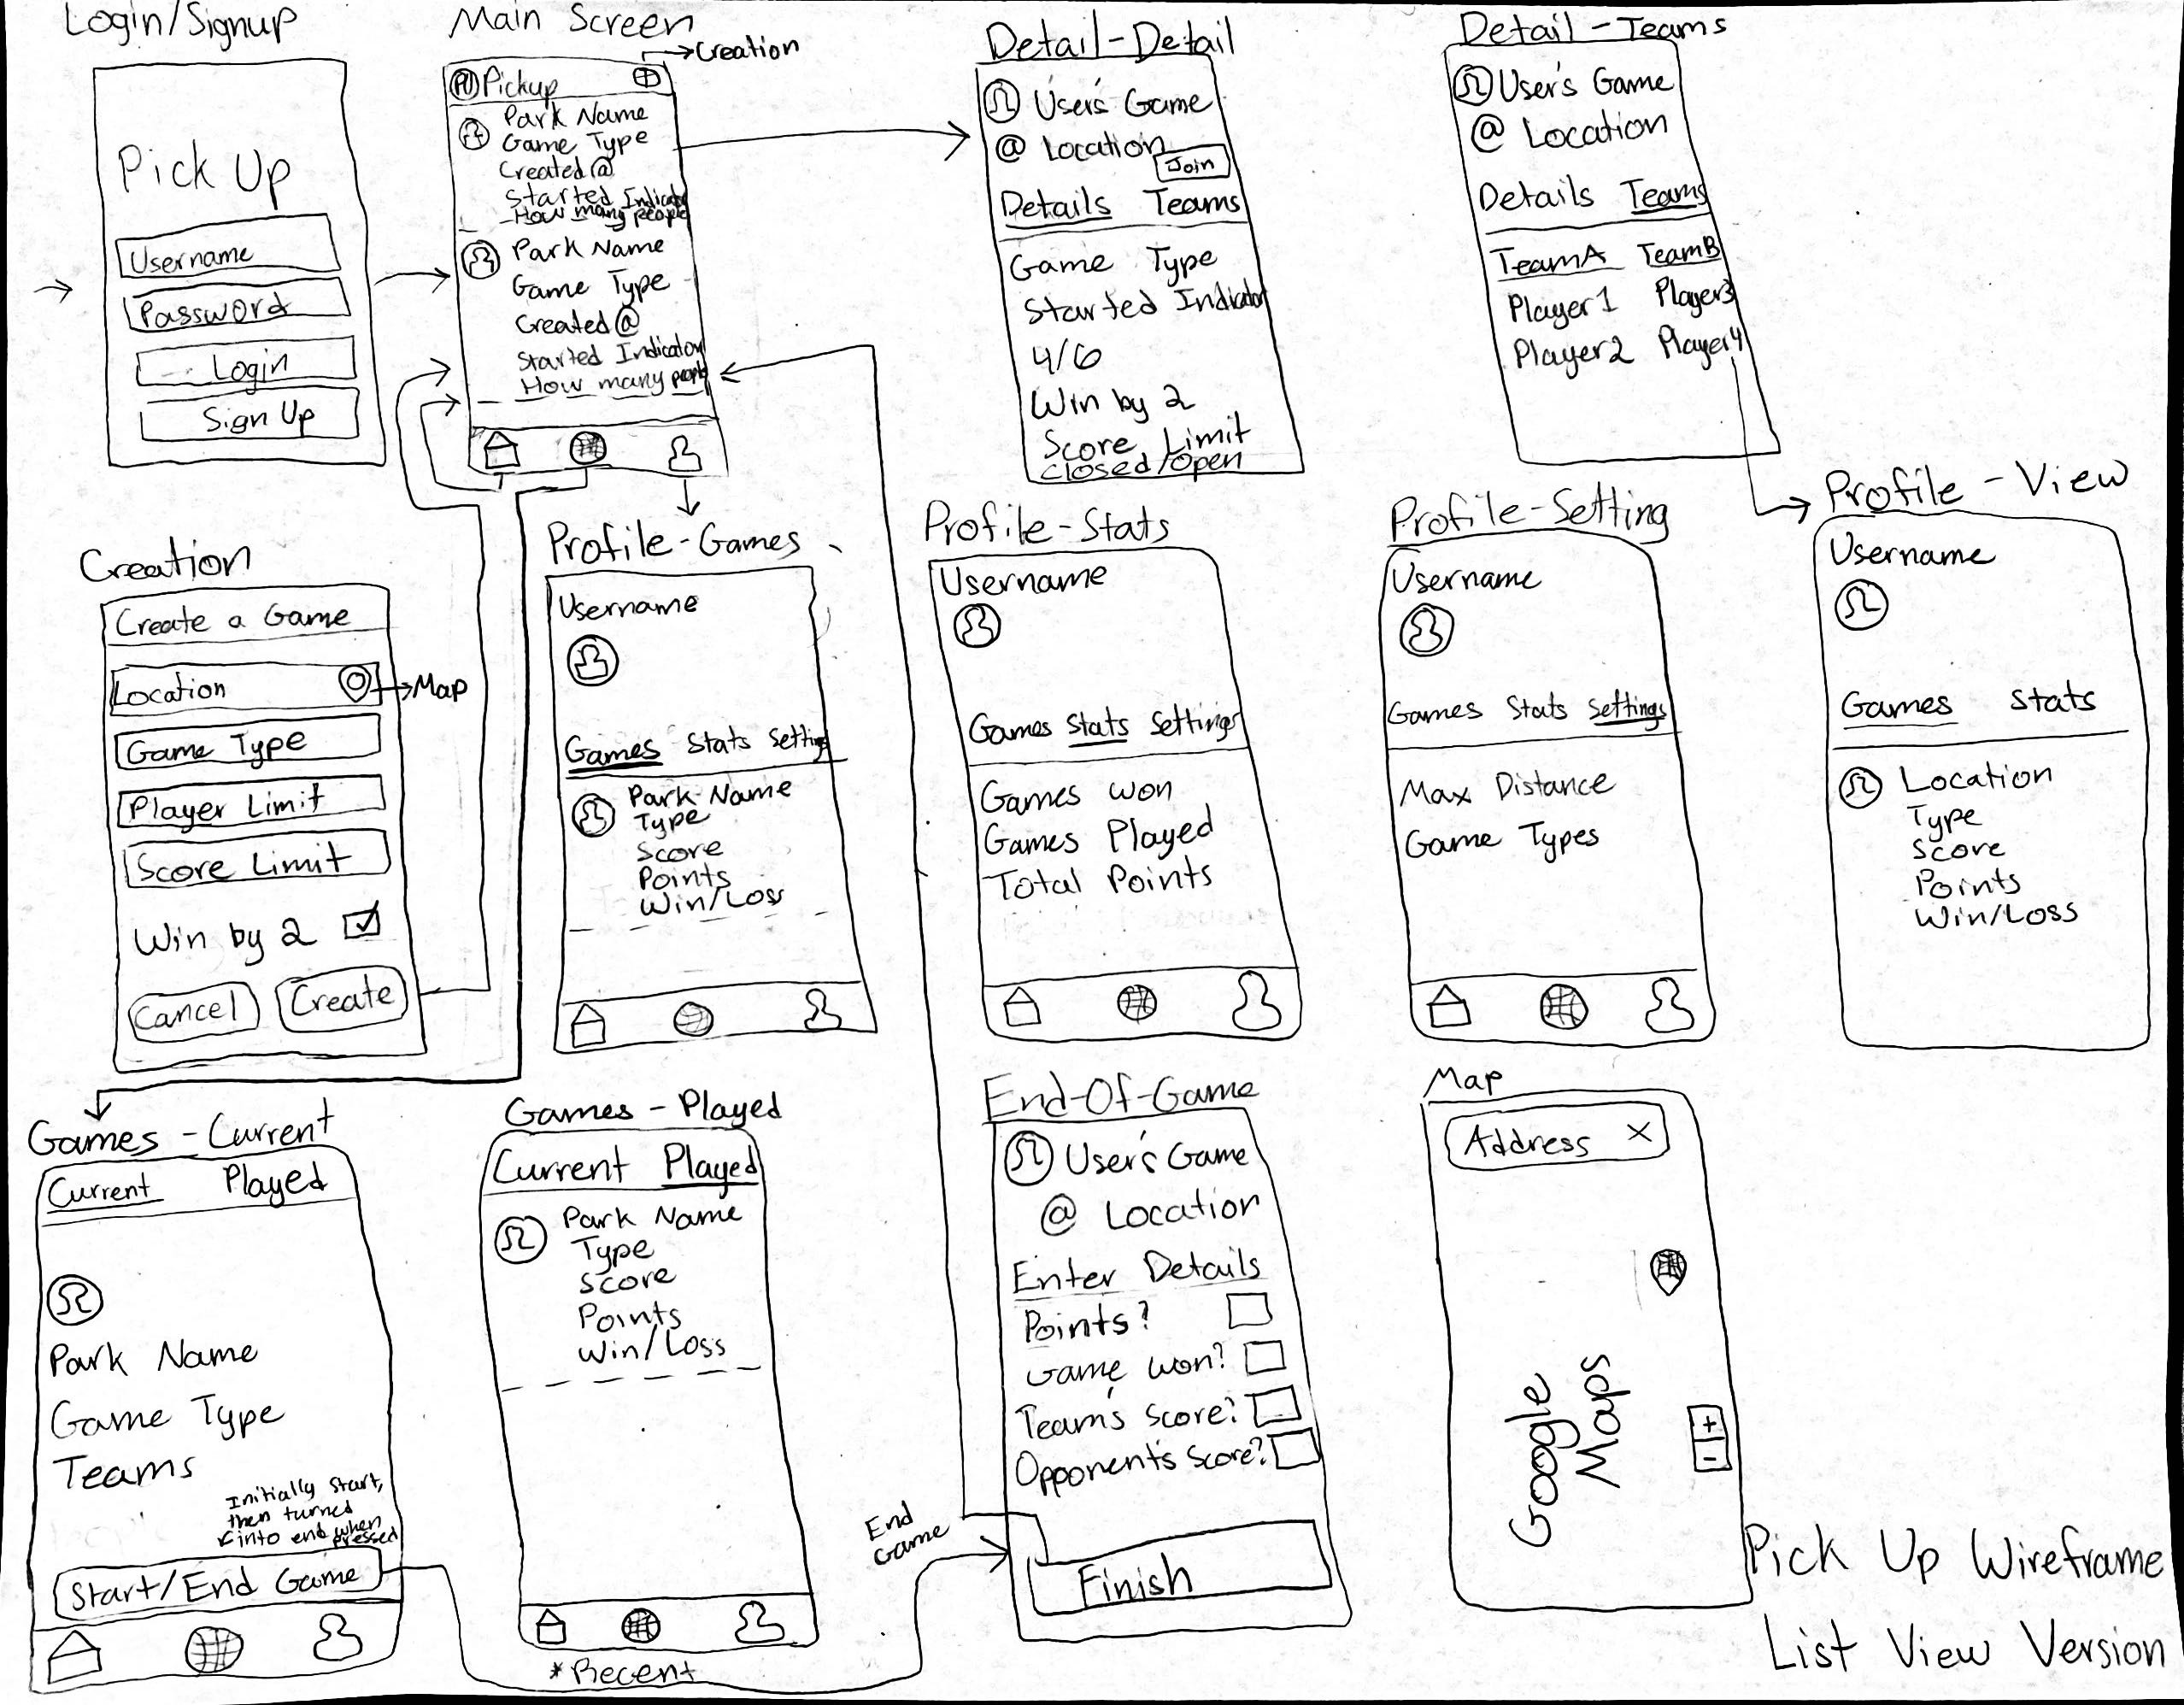 Login/Signup
Pick Up
Username
Password
Login
Sign Up
Main Screen
→Creation
Pickup
Park Name
Game Type
Created @
Started Indicator
How many people
Park Name
Game Type
Created @
Started Indicator
How many people
Detail-Detail
User's Game
@ Location
Join
Details Teams
Game Type
Started Indicator
4/6
Win by 2
Score Limit
closed/open
Detail-Teams
User's Game
@ Location
Details Teams
Team A Team B
Player 1 Player 3
Player 2 Player 4
Creation
Create a Game
Location →Map
Game Type
Player Limit
Score Limit
Win by 2
Cancel Create
Profile-Games
Username
Games Stats Setting
Park Name
Type
Score
Points
Win/Loss
Profile-Stats
Username
Games Stats Settings
Games won
Games Played
Total Points
Profile-Setting
Username
Games Stats Settings
Max Distance
Game Types
Profile-View
Username
Games Stats
Location
Type
Score
Points
Win/Loss
Games-Current
Current Played
Park Name
Game Type
Teams
Initially start,
then turned
into end when
pressed
Start/End Game
Games-Played
Current Played
Park Name
Type
Score
Points
Win/Loss
*Recent
End
Game
End-Of-Game
User's Game
@ Location
Enter Details
Points?
Game won?
Team's Score?
Opponent's Score?
Finish
Map
Address X
Google
Maps
+
-
Pick Up Wireframe
List View Version